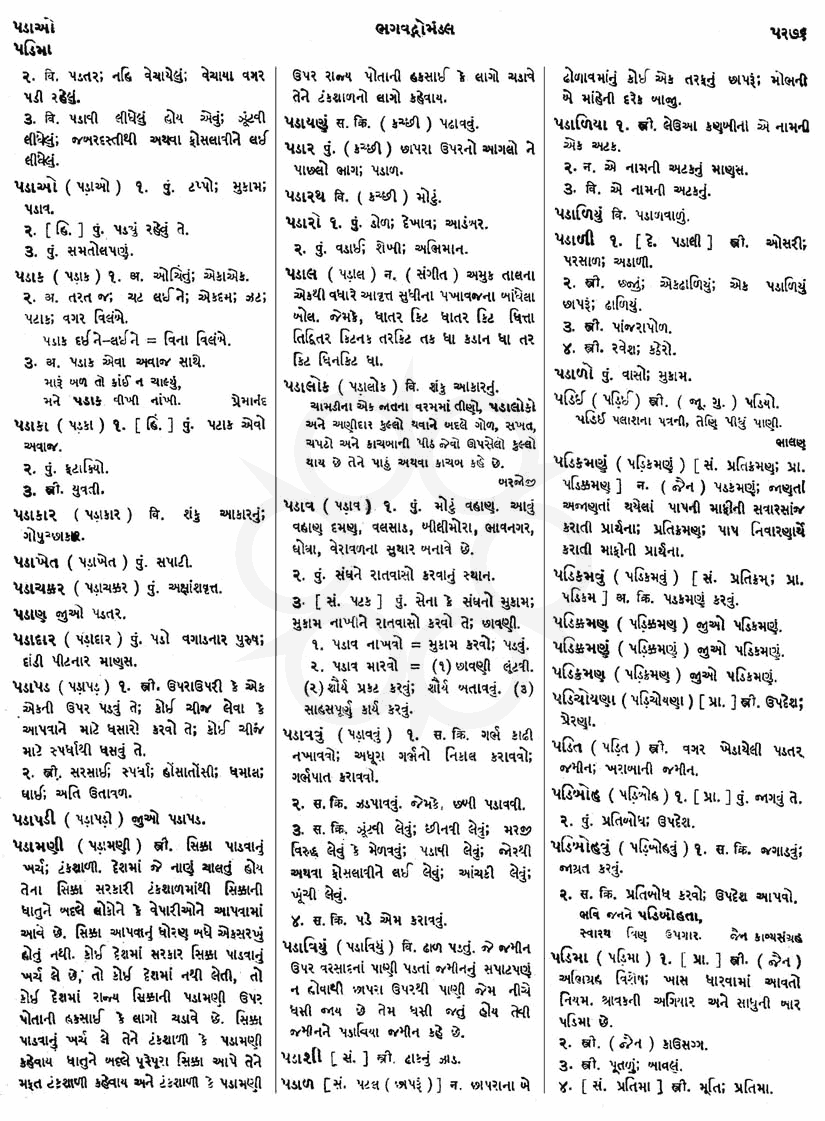 પડાઓ
પડિમા
ભગવદ્ગોમંડલ
૫૨૭૬
૨. વિ. પડતર; નહિ વેચાયેલું; વેચાયા વગર
પડી રહેલું.
૩. વિ. પડાવી લીધેલું હોય એવું; ઝૂંટવી
લીધેલું; જબરદસ્તીથી અથવા ફોસલાવીને લઈ
લીધેલું.
પડાઓ ( પડ઼ાઓ ) ૧. પું. ટપ્પો; મુકામ;
પડાવ.
૨. [ હિં. ] પું. પડ્યું રહેવું તે.
૩. પું. સમતોલપણું.
પડાક ( પડ઼ાક ) ૧. અ. ઓચિંતું; એકાએક.
૨. અ. તરત જ; ચટ લઈને; એકદમ; ઝટ;
પટાક; વગર વિલંબે.
પડાક દઈને–લઈને = વિના વિલંબે.
૩. અ. પડાક એવા અવાજ સાથે.
મારૂં બળ તો કાંઈ ન ચાલ્યું,
મને પડાક વીખી નાંખી. પ્રેમાનંદ
પડાકા ( પડ઼કા ) ૧. [ હિં. ] પું. પટાક એવો
અવાજ.
૨. પું. ફટાકિયો.
૩. સ્ત્રી. યુવતી.
પડાકાર ( પડ઼ાકાર ) વિ. શંકુ આકારનું;
ગોપુચ્છાકાર.
પડાખેત ( પડ઼ાખેત ) પું. સપાટી.
પડાચક્કર ( પડ઼ાચક્કર ) પું. અક્ષાંશવૃત્ત.
પડાણુ જુઓ પડતર.
પડાદાર ( પડ઼ાદાર ) પું. પડો વગાડનાર પુરુષ;
દાંડી પીટનાર માણુસ.
પડાપડ ( પડ઼ાપડ઼ ) ૧. સ્ત્રી. ઉપરાઉપરી કે એક
એકની ઉપર પડવું તે; કોઈ ચીજ લેવા કે
આપવાને માટે ધસારો કરવો તે; કોઈ ચીજ
માટે સ્પર્ધાથી ધસવું તે.
૨. સ્ત્રી. સરસાઈ; સ્પર્ધા; હોંસાતોંસી; ધમાલ;
ધાઈ; અતિ ઉતાવળ.
પડાપડી ( પડ઼ાપડ઼ી ) જુઓ પડાપડ.
પડામણી ( પડ઼ામણી ) સ્ત્રી. સિક્કા પાડવાનું
ખર્ચ; ટંકશાળી. દેશમાં જે નાણું ચાલતું હોય
તેના સિક્કા સરકારી ટંકશાળમાંથી સિક્કાની
ધાતુને બદલે લોકોને કે વેપારીઓને આપવામાં
આવે છે. સિક્કા આપવાનું ધોરણ બધે એકસરખું
હોતું નથી. કોઈ દેશમાં સરકાર સિક્કા પાડવાનું
ખર્ચ લે છે, તો કોઈ દેશમાં નથી લેતી, તો
કોઈ દેશમાં રાજ્ય સિક્કાની પડામણી ઉપર
પોતાની હકસાઈ કે લાગો ચડાવે છે. સિક્કા
પાડવાનું ખર્ચ લે તેને ટંકશાળી કે પડામણી
કહેવાય ધાતુને બદલે પૂરેપૂરા સિક્કા આપે તેને
મફત ટંકશાળી કહેવાય અને ટંકશાળી કે પડામણી
ઉપર રાજ્ય પોતાની હકસાઈ કે લાગો ચડાવે
તેને ટંકશાળનો લાગો કહેવાય.
પડાયણું સ. ક્રિ. ( કચ્છી ) પઢાવવું.
પડાર પું. ( કચ્છી ) છાપરા ઉપરનો આગલો ને
પાછલો ભાગ; પડાળ.
પડારથ વિ. ( કચ્છી ) મોટું.
પડારો ૧. પું. ડોળ; દેખાવ; આડંબર.
૨. પું. વડાઈ; શેખી; અભિમાન.
પડાલ ( પડ઼ાલ ) ન. ( સંગીત ) અમુક તાલના
એકથી વધારે આવૃત્ત સુધીના પખાવજના બાંધેલા
બોલ. જેમકે, ધાતર કિટ ધાતર કિટ ધિત્તા
તિદ્ધિતર કિટનક તરકિટ તક ધા કડાન ધા તર
કિટ ધિનકિટ ધા.
પડાલોક ( પડ઼ાલોક ) વિ. શંકુ આકારનું.
ચામડીના એક જાતના વરમમાં તીણો, પડાલોકો
અને અણીદાર ફુલ્લો થવાને બદલે ગોળ, સખત,
ચપટો અને કાચબાની પીઠ જેવો ઊપસેલો ફુલ્લો
થાય છે તેને પાઠું અથવા કાચબ કહે છે.
બરજોજી
પડાવ ( પડ઼ાવ ) ૧. પું. મોટું વહાણુ. આવું
વહાણુ દમણુ, વલસાડ, બીલીમોરા, ભાવનગર,
ધોત્રા, વેરાવળના સુથાર બનાવે છે.
૨. પું. સંઘને રાતવાસો કરવાનું સ્થાન.
૩. [ સં. પટક ] પું. સેના કે સંઘનો મુકામ;
મુકામ નાખીને રાતવાસો કરવો તે; છાવણી.
૧. પડાવ નાખવો = મુકામ કરવો; પડવું.
૨. પડાવ મારવો = (૧) છાવણી લૂંટવી.
(૨) શૌર્ય પ્રકટ કરવું; શૌર્ય બતાવવું. (૩)
સાહસપૂર્ણ કાર્ય કરવું.
પડાવવું ( પડ઼ાવવું ) ૧. સ. ક્રિ. ગર્ભ કાઢી
નખાવવો; અધૂરા ગર્ભનો નિકાલ કરાવવો;
ગર્ભપાત કરાવવો.
૨. સ. ક્રિ. ઝડપાવવું. જેમકે, છબી પડાવવી.
૩. સ. ક્રિ. ઝૂંટવી લેવું; છીનવી લેવું; મરજી
વિરુદ્ધ લેવું કે મેળવવું; પડાવી લેવું; જોરથી
અથવા ફોસલાવીને લઈ લેવું; આંચકી લેવું;
ખૂંચી લેવું.
૪. સ. ક્રિ. પડે એમ કરાવવું.
પડાવિયું ( પડ઼ાવિયું ) વિ. ઢાળ પડતું. જે જમીન
ઉપર વરસાદનાં પાણી પડતાં જમીનનું સપાટપણું
ન હોવાથી છાપરા ઉપરથી પાણી જેમ નીચે
ધસી જાય છે તેમ ધસી જતું હોય તેવી
જમીનને પડાવિયા જમીન કહે છે.
પડાશી [ સં. ] સ્ત્રી. ઢાકનું ઝાડ.
પડાળ [ સં. પટલ ( છાપરું ) ] ન. છાપરાના બે
ઢોળાવમાંનું કોઈ એક તરફનું છાપરૂં; મોભની
બે માંહેની દરેક બાજુ.
પડાળિયા ૧. સ્ત્રી. લેઉઆ કણબીના એ નામની
એક અટક.
૨. ન. એ નામની અટકનું માણુસ.
૩. વિ. એ નામની અટકનું.
પડાળિયું વિ. પડાળવાળું.
પડાળી ૧. [ દે. પડાલી ] સ્ત્રી. ઓસરી;
પરસાળ; અડાળી.
૨. સ્ત્રી. છજું; એકઢાળિયું; એક પડાળિયું
છાપરૂં; ઢાળિયું.
૩. સ્ત્રી. પાંજરાપોળ.
૪. સ્ત્રી. રવેશ; કઠેરો.
પડાળો પું. વાસો; મુકામ.
પડિઈ ( પડ઼િઈ ) સ્ત્રી. ( જૂ. ગુ. ) પડિયો.
પડિઈ પલારાના પત્રની, તેણિ પીધું પાણી.
ભાલણ
પડિકમણું ( પડ઼િકમણું ) [ સં. પ્રતિક્રમણુ; પ્રા.
પડિક્કમણુ ] ન. ( જૈન ) પડકમણું; જાણતાં
અજાણતાં થયેલાં પાપની માફીની સવારસાંજ
કરાતી પ્રાર્થના; પ્રતિક્રમણ; પાપ નિવારણાર્થે
કરાતી માફીની પ્રાર્થના.
પડિકમવું ( પડ઼િકમવું ) [ સં. પ્રતિક્રમ; પ્રા.
પડિકમ ] અ. ક્રિ. પડકમણું કરવું.
પડિક્કમણુ ( પડ઼િક્કમણુ ) જુઓ પડિકમણું.
પડિક્કમણું ( પડ઼િક્કમણું ) જુઓ પડિકમણું.
પડિક્રમણુ ( પડ઼િક્રમણુ ) જુઓ પડિકમણું.
પડિચોયણા ( પડ઼િચોયણા ) [ પ્રા. ] સ્ત્રી. ઉપદેશ;
પ્રેરણા.
પડિત ( પડ઼િત ) સ્ત્રી. વગર ખેડાયેલી પડતર
જમીન; ખરાબાની જમીન.
પડિબોહ ( પડ઼િબોહ ) ૧. [ પ્રા. ] પું. જાગવું તે.
૨. પું. પ્રતિબોધ; ઉપદેશ.
પડિબોહવું ( પડ઼િબોહવું ) ૧. સ. ક્રિ. જગાડવું;
જાગ્રત કરવું.
૨. સ. ક્રિ. પ્રતિબોધ કરવો; ઉપદેશ આપવો.
ભવિ જનને પડિબોહતા,
સ્વારથ વિણુ ઉપગાર. જૈન કાવ્યસંગ્રહ
પડિમા ( પડ઼િમા ) ૧. [ પ્રા. ] સ્ત્રી. ( જૈન )
અભિગ્રહ વિશેષ; ખાસ ધારવામાં આવતો
નિયમ. શ્રાવકની અગિયાર અને સાધુની બાર
પડિમા છે.
૨. સ્ત્રી. ( જૈન ) કાઉસગ્ગ.
૩. સ્ત્રી. પૂતળું; બાવલું.
૪. [ સં. પ્રતિમા ] સ્ત્રી. મૂર્તિ; પ્રતિમા.